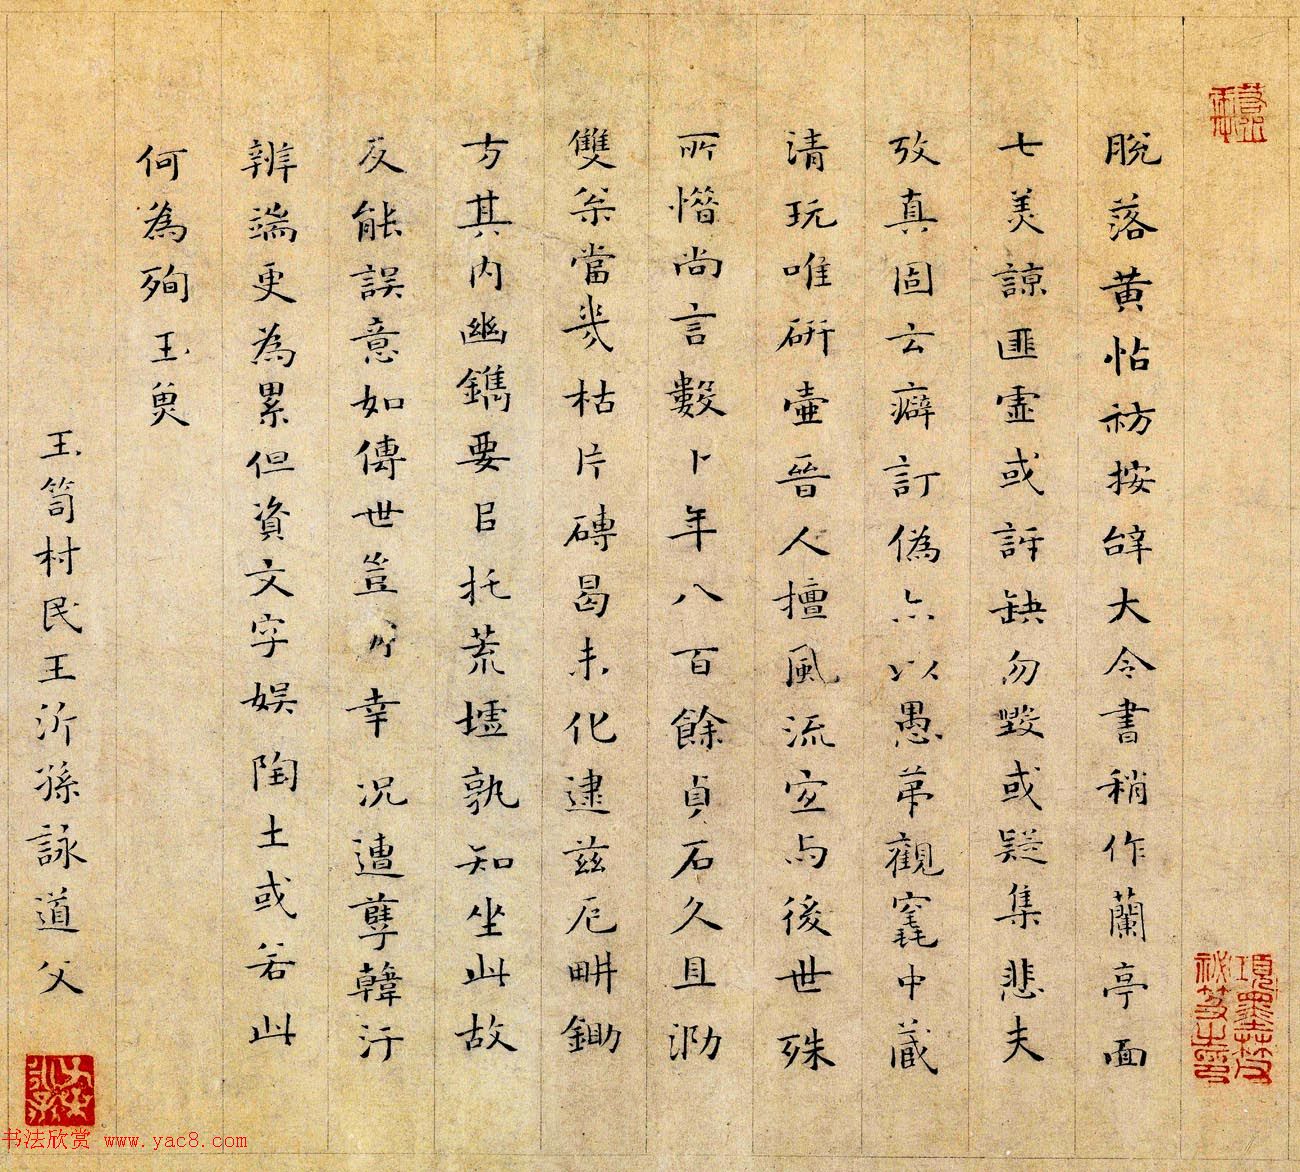 脫落黃帖祊按辥大令書稍作蘭亭面
七美諒匪虛或訝缺勿毀或疑集悲夫
攷真固云癖訂僞亦以愚苐觀窀中蔵
清玩唯研壷晉人擅風流宐与後世殊
所憯尚言數卜年八百餘貞石久且泐
雙枀當爂枯片磚曷未化逮茲厄畊鋤
方其內幽鐫要㠯托荒墟孰知坐此故
反能誤意如傳世豈幸況遭孽韓汙
辨端更為累但資文字娛陶土或若此
何為殉玉臾
玉笥村民王沂孫詠道父
項墨林父秘笈之印
书法欣赏 www.yac8.com